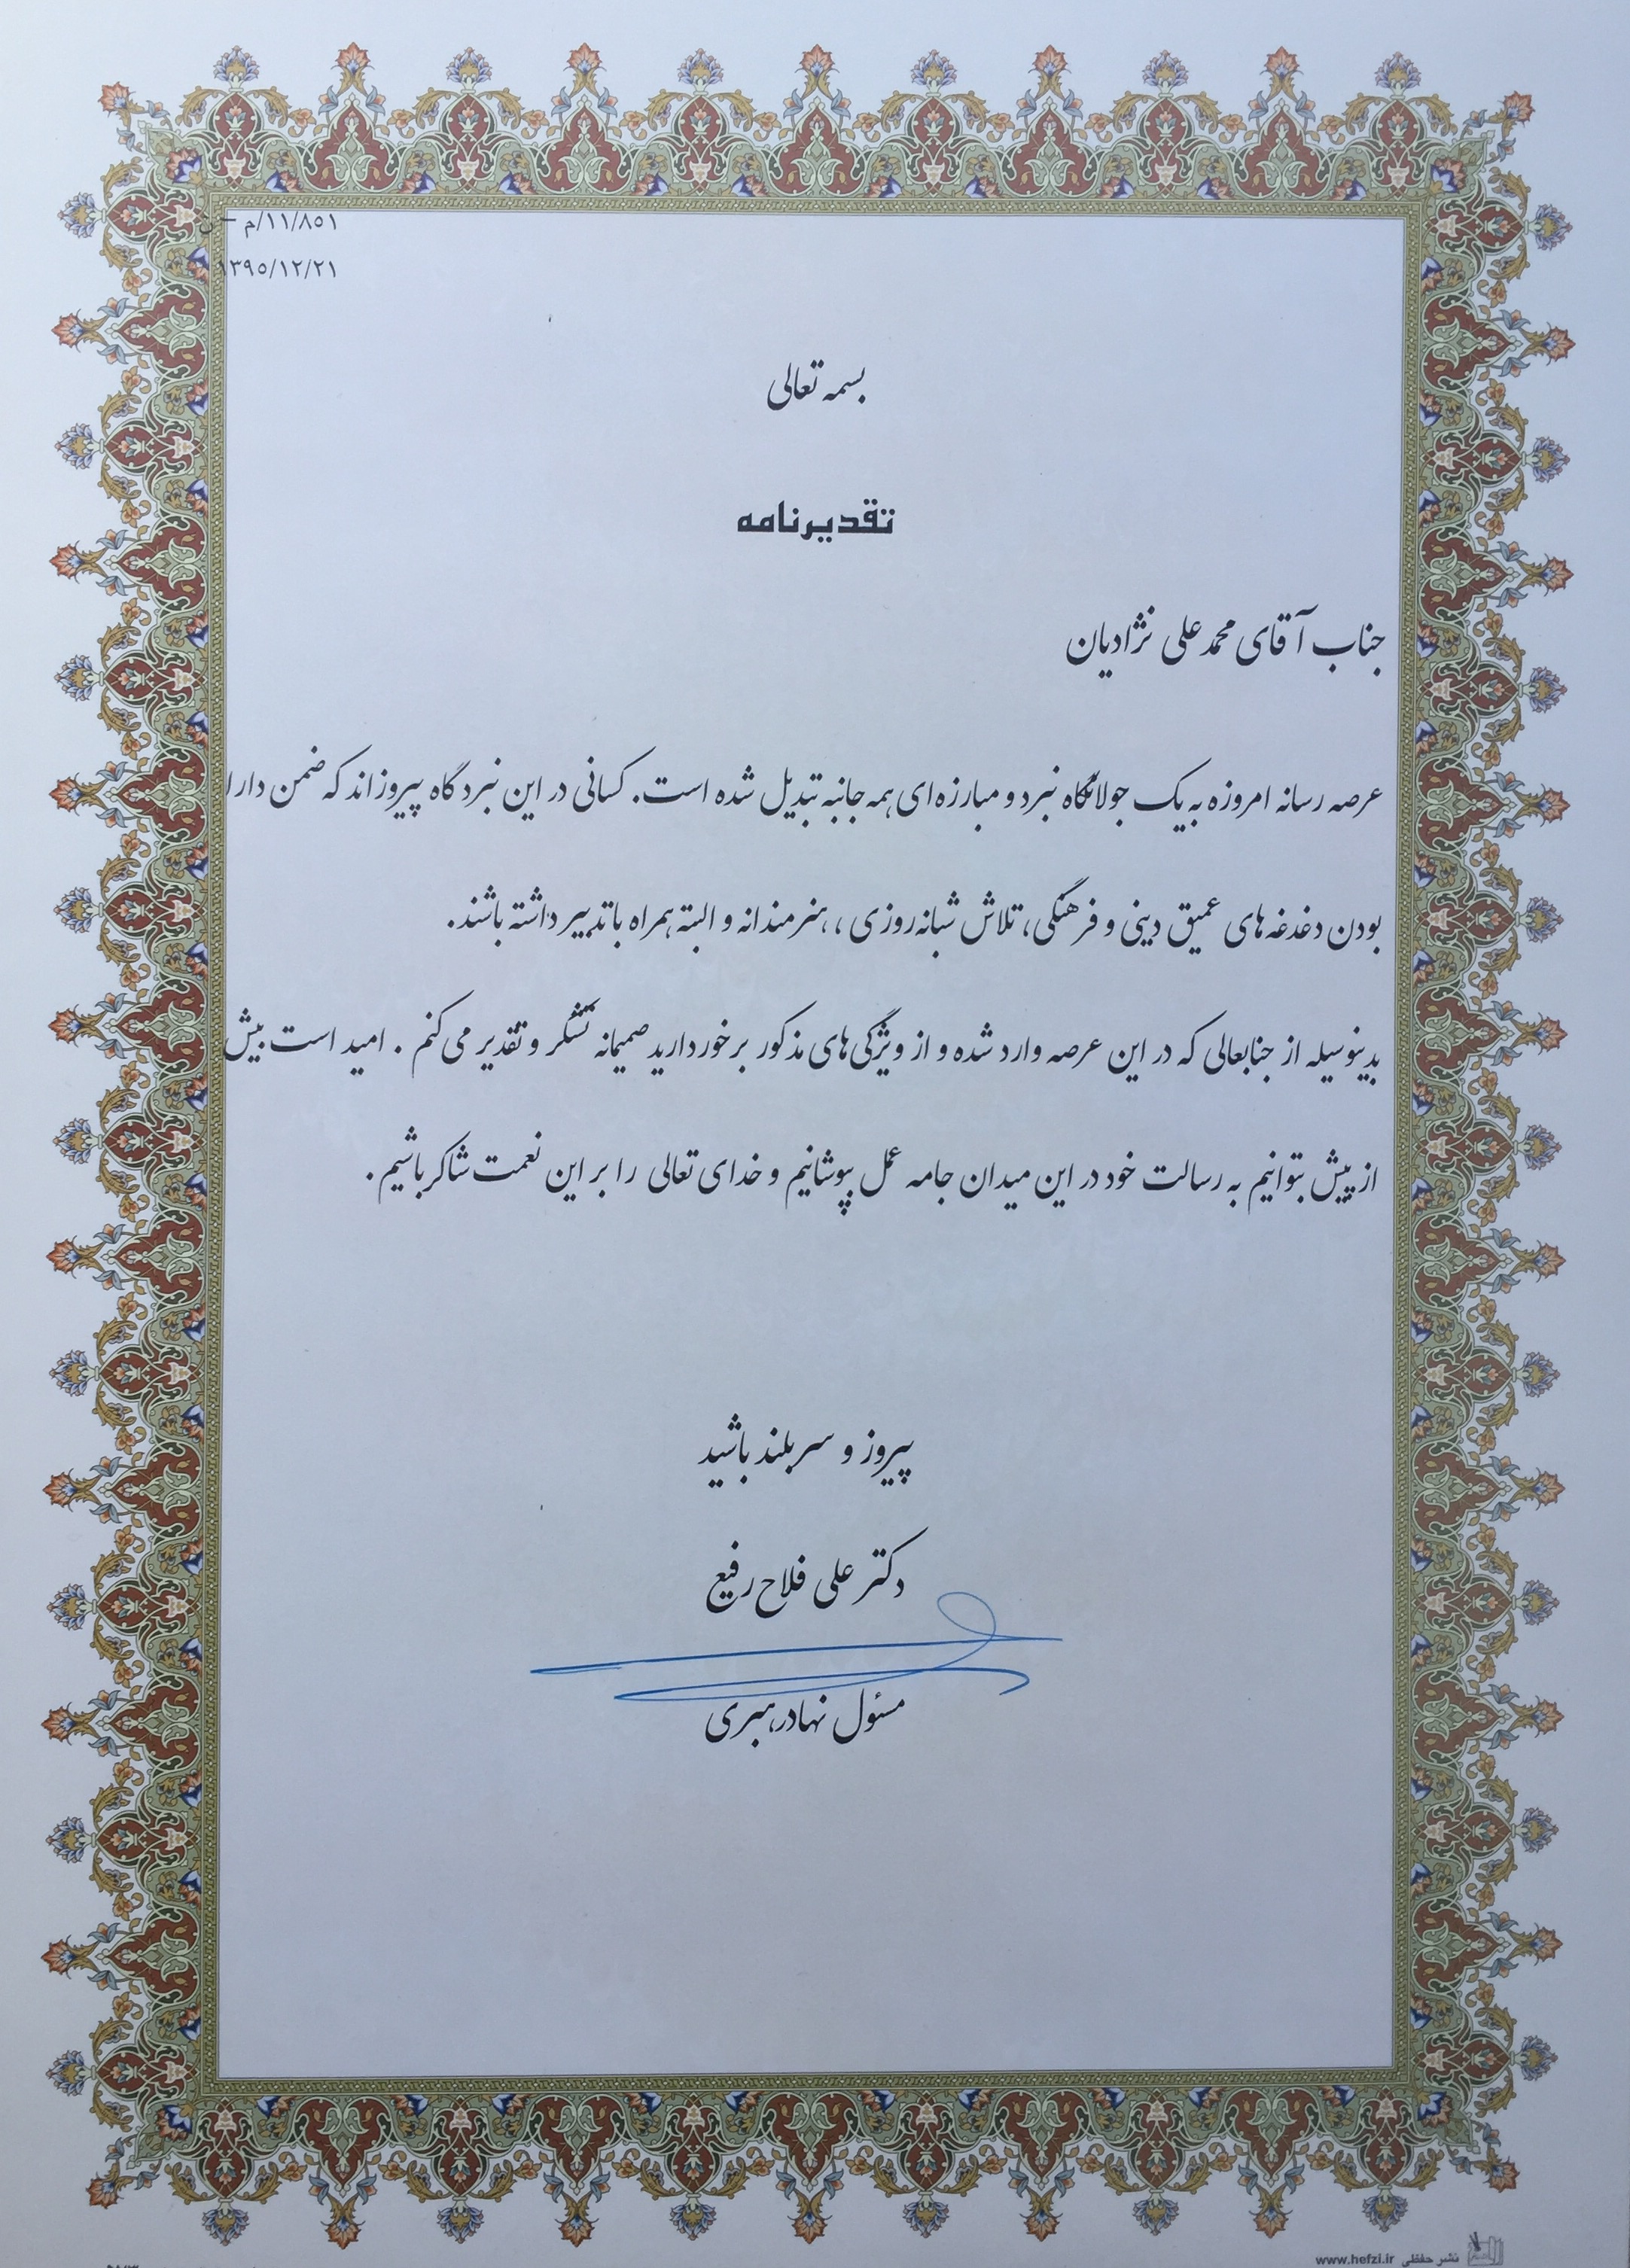 ۱۱/۸۵۱/م – ن
۱۳۹۵/۱۲/۲۱
بسمه تعالی
تقدیرنامه
جناب آقای محمدعلی نژادیان
عرصه رسانه امروزه به یک جولانگاه نبرد و مبارزه‌ای همه جانبه تبدیل شده است. کسانی در این نبردگاه پیروزاند که ضمن دارا
بودن دغدغه‌های عمیق دینی و فرهنگی، تلاش شبانه‌روزی ، هنرمندانه و البته همراه با تدبیر داشته باشند.
بدینوسیله از جنابعالی که در این عرصه وارد شده و از ویژگی‌های مذکور برخوردارید صمیمانه تشکر و تقدیر می‌کنم . امید است بیش
از پیش بتوانیم به رسالت خود در این میدان جامه عمل بپوشانیم و خدای تعالی را بر این نعمت شاکر باشیم.
پیروز و سربلند باشید
دکتر علی فلاح رفیع
مسئول نهاد رهبری
نشر حفظی www.hefzi.ir